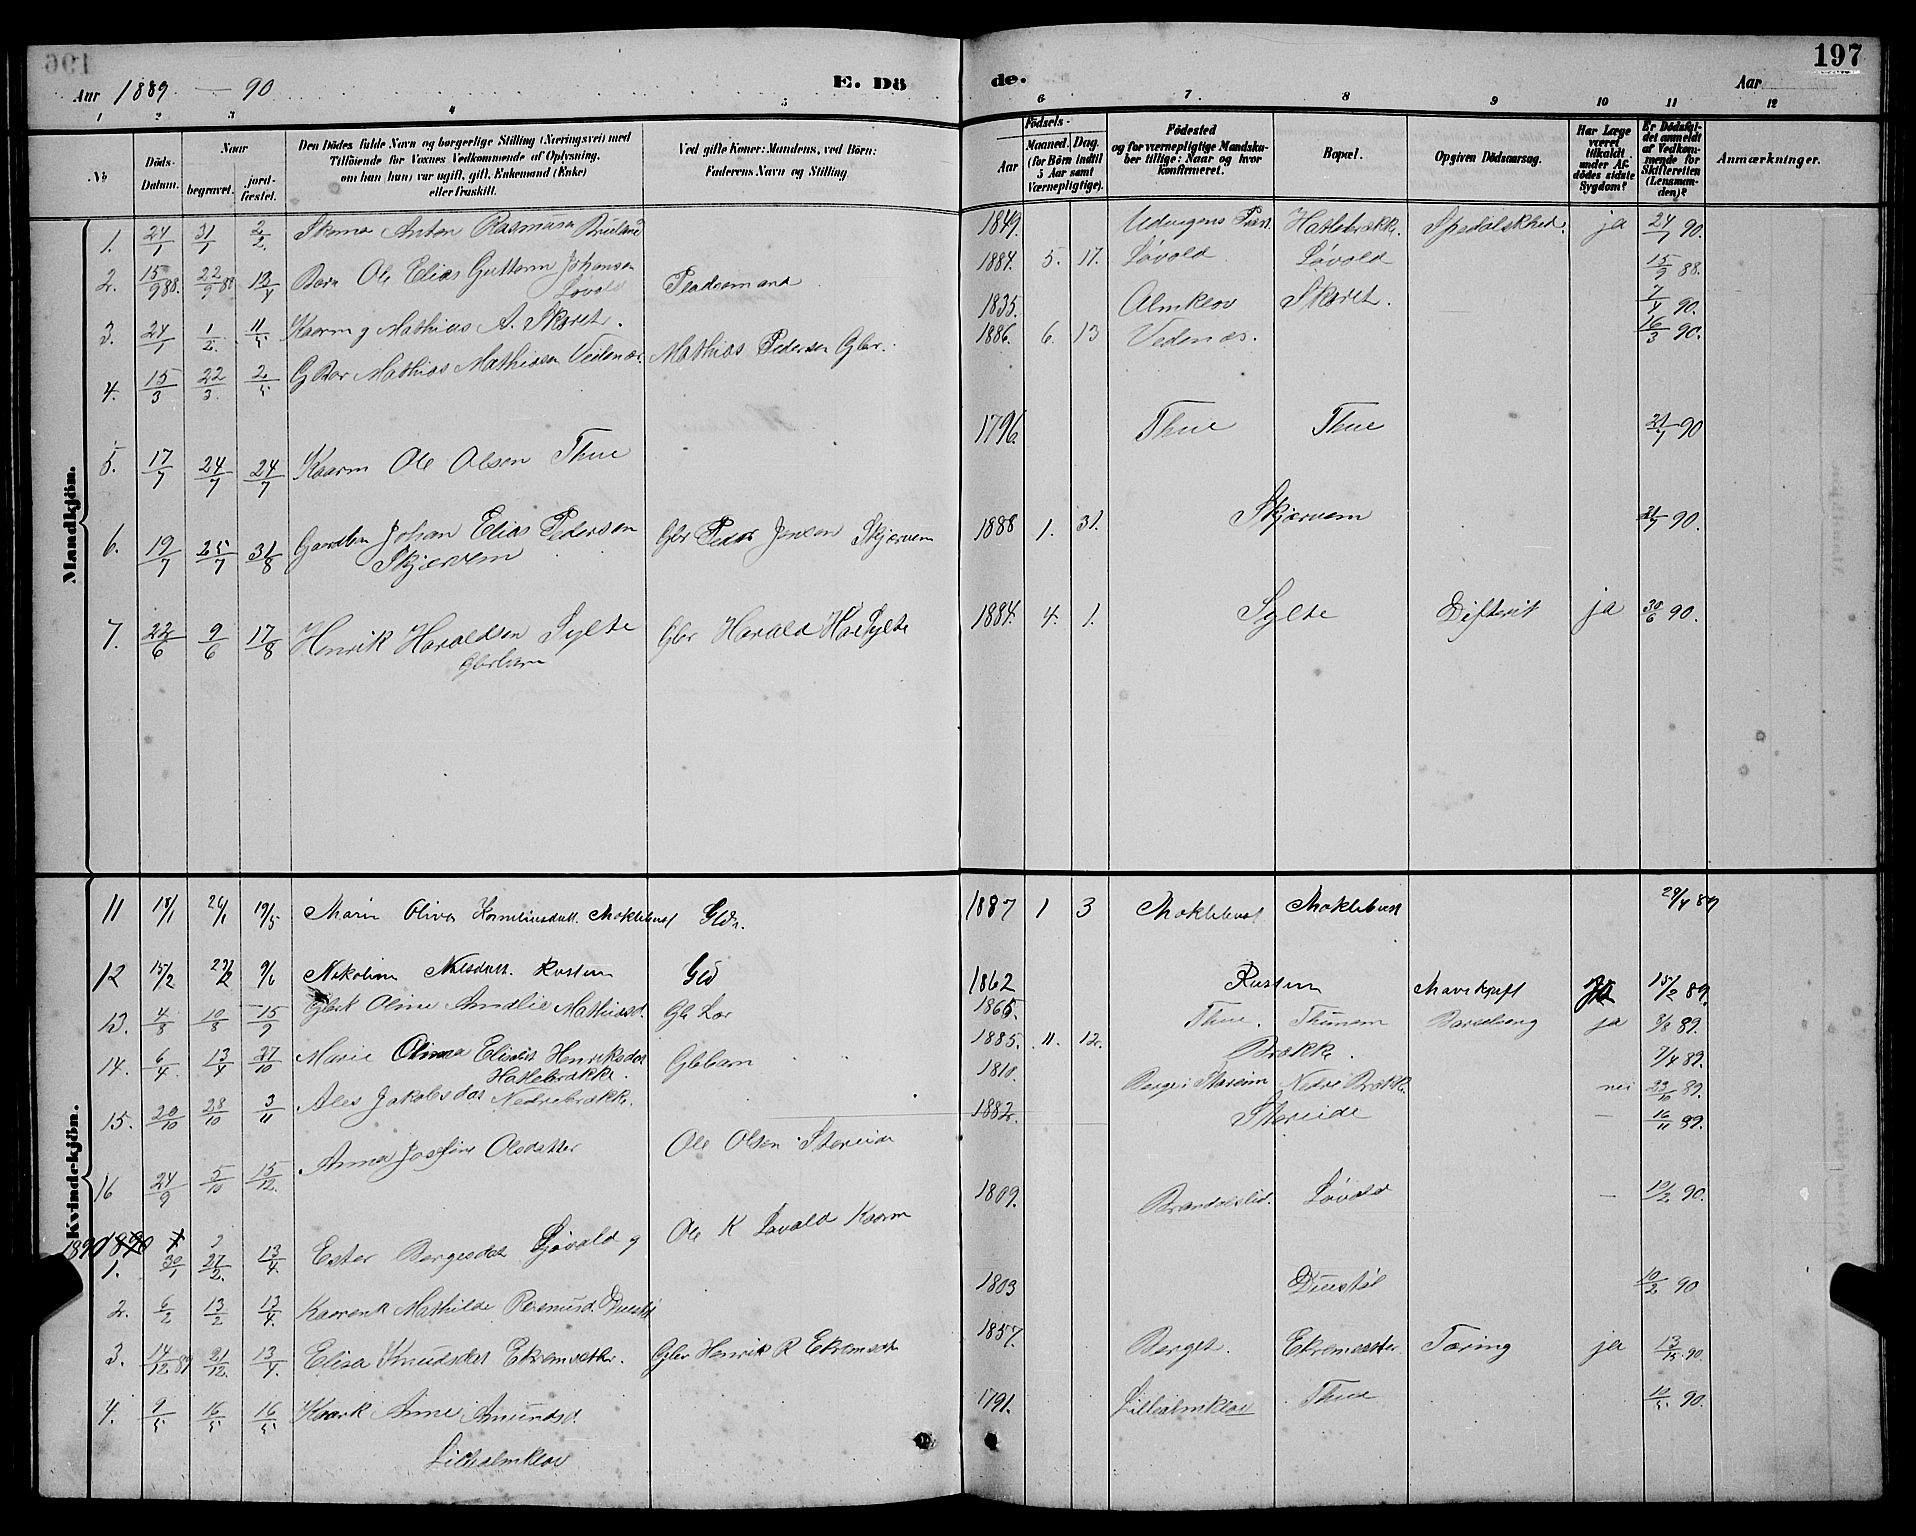 196
197
Aar 1889 — 90
E. Dö
de.
Aar
1 2 3 4 5 6 7 8 9 10 11 12
No
Döds-Datum.
Naar
begravet.
jord-fæstet.
Den Dödes fulde Navn og borgerlige Stilling (Næringsvei) med
Tilföiende for Voxnes Vedkommende af Oplysning,
om han (hun) var ugift, gift, Enkemand (Enke)
eller fraskilt.
Ved gifte Koner: Mandens, ved Börn:
Faderens Navn og Stilling.
Födsels-
Aar
Maaned. Dag.
(for Börn indtil
5 Aar samt
Værnepligtige).
Födested
og for værnepligtige Mandsku-
ber tillige: Naar og hvor
konfirmeret.
Bopæl.
Opgiven Dödsaarsag.
Har Læge
været
tilkaldt
under Af-
dödes sidste
Sygdom?
Er Dödsfal-
det anmeldt
af Vedkom-
mende for
Skifteretten
(Lensman-
den)?
Anmærkninger.
Mandkjön.
1. 24/1 31/1 2/2 Anton Rasmusen 1849. Hatlebrække. Spedalskhed. ja 24/1 90.
2. 15/9 88. 22/9 88 13/4 Barn Ole Elias Guttorm Johansen Løvold Pladsemand 1884. 5. 17. Løvold. Løvold 15/9 88.
3. 24/1 1/2. 11/5 Kaarm g Mathias A. Skaret. 1835. Almklov Skaret. 7/4 90.
4. 15/3 22/3. 2/5 G Bar Mathias Mathisen Vedenæs. Mathias Pedersen Gbr. 1886. 6. 13 Vedenæs. 16/3 90.
5. 17/7 24/7 24/7 Kaarm Ole Olsen Thue 1796. Thue Thue 21/7 90
6. 19/7 25/7 31/8 Johan Elias Pedersen Skjærvem Gbr Peder Jensen Skjærvem 1888 1. 31. Skjærvem 21/7 90.
7. 22/6 9/6 17/8 Henrik Haraldsen Sylte Gbrbarn Gbr Harald Sylte 1884. 4. 1. Sylte Difterit ja 30/6 90.
Kvindekjön.
11 18/1 26/1 19/5 Marie Oliva Korneliusdatt. Moklebust Gbr. 1887 1 3 Moklebust Moklebust 29/4 89
12 15/2 23/2 9/6 Nikoline Nilsdatt. Rusten Gbr 1862 Rusten Ja 15/2 89.
13. 4/8 10/8 15/9 Gbrk Oline Amalie Mathiasd. 1865. Thue. Thunem Barselseng ja 8/8 89.
14. 6/4. 13/4 27/10 Marie Olinea Elisabet Henriksdat Hatlebrække. Gbbarn 1885. 11. 12. Brække. 7/4 89.
15. 20/10 28/10 3/11 Ales Jakobsdat Nedrebrække. 1810. Nedre Brække. nei 23/10 89.
16 24/9 5/10 15/12. Anna Josefine Olsdatter Ole Olsen Støreide 1882. Støreide — 16/11 89.
1890 1890
1. 30/1 27/2. 13/4 Ester Børgesdat Løvold g Ole K Løvold Kaarm 1809. Løvold — 12/2 90.
2. 6/2 13/2 13/4. Kaarenk Mathilde Rasmusd. Duestøl 1803 Duestøl 10/2 90
3. 14/12 89 21/12. 13/4. Elisa Knudsdat Ekremsæter. Gbr Henrik R Ekremsæter 1857. Berget. Ekremsæter Tæring ja 13/5. 90.
4. 9/5 16/5 16/5 Kaark Anne Amundsd. Lillealmklov 1791. Lillealmklov Thue 10/5 90.